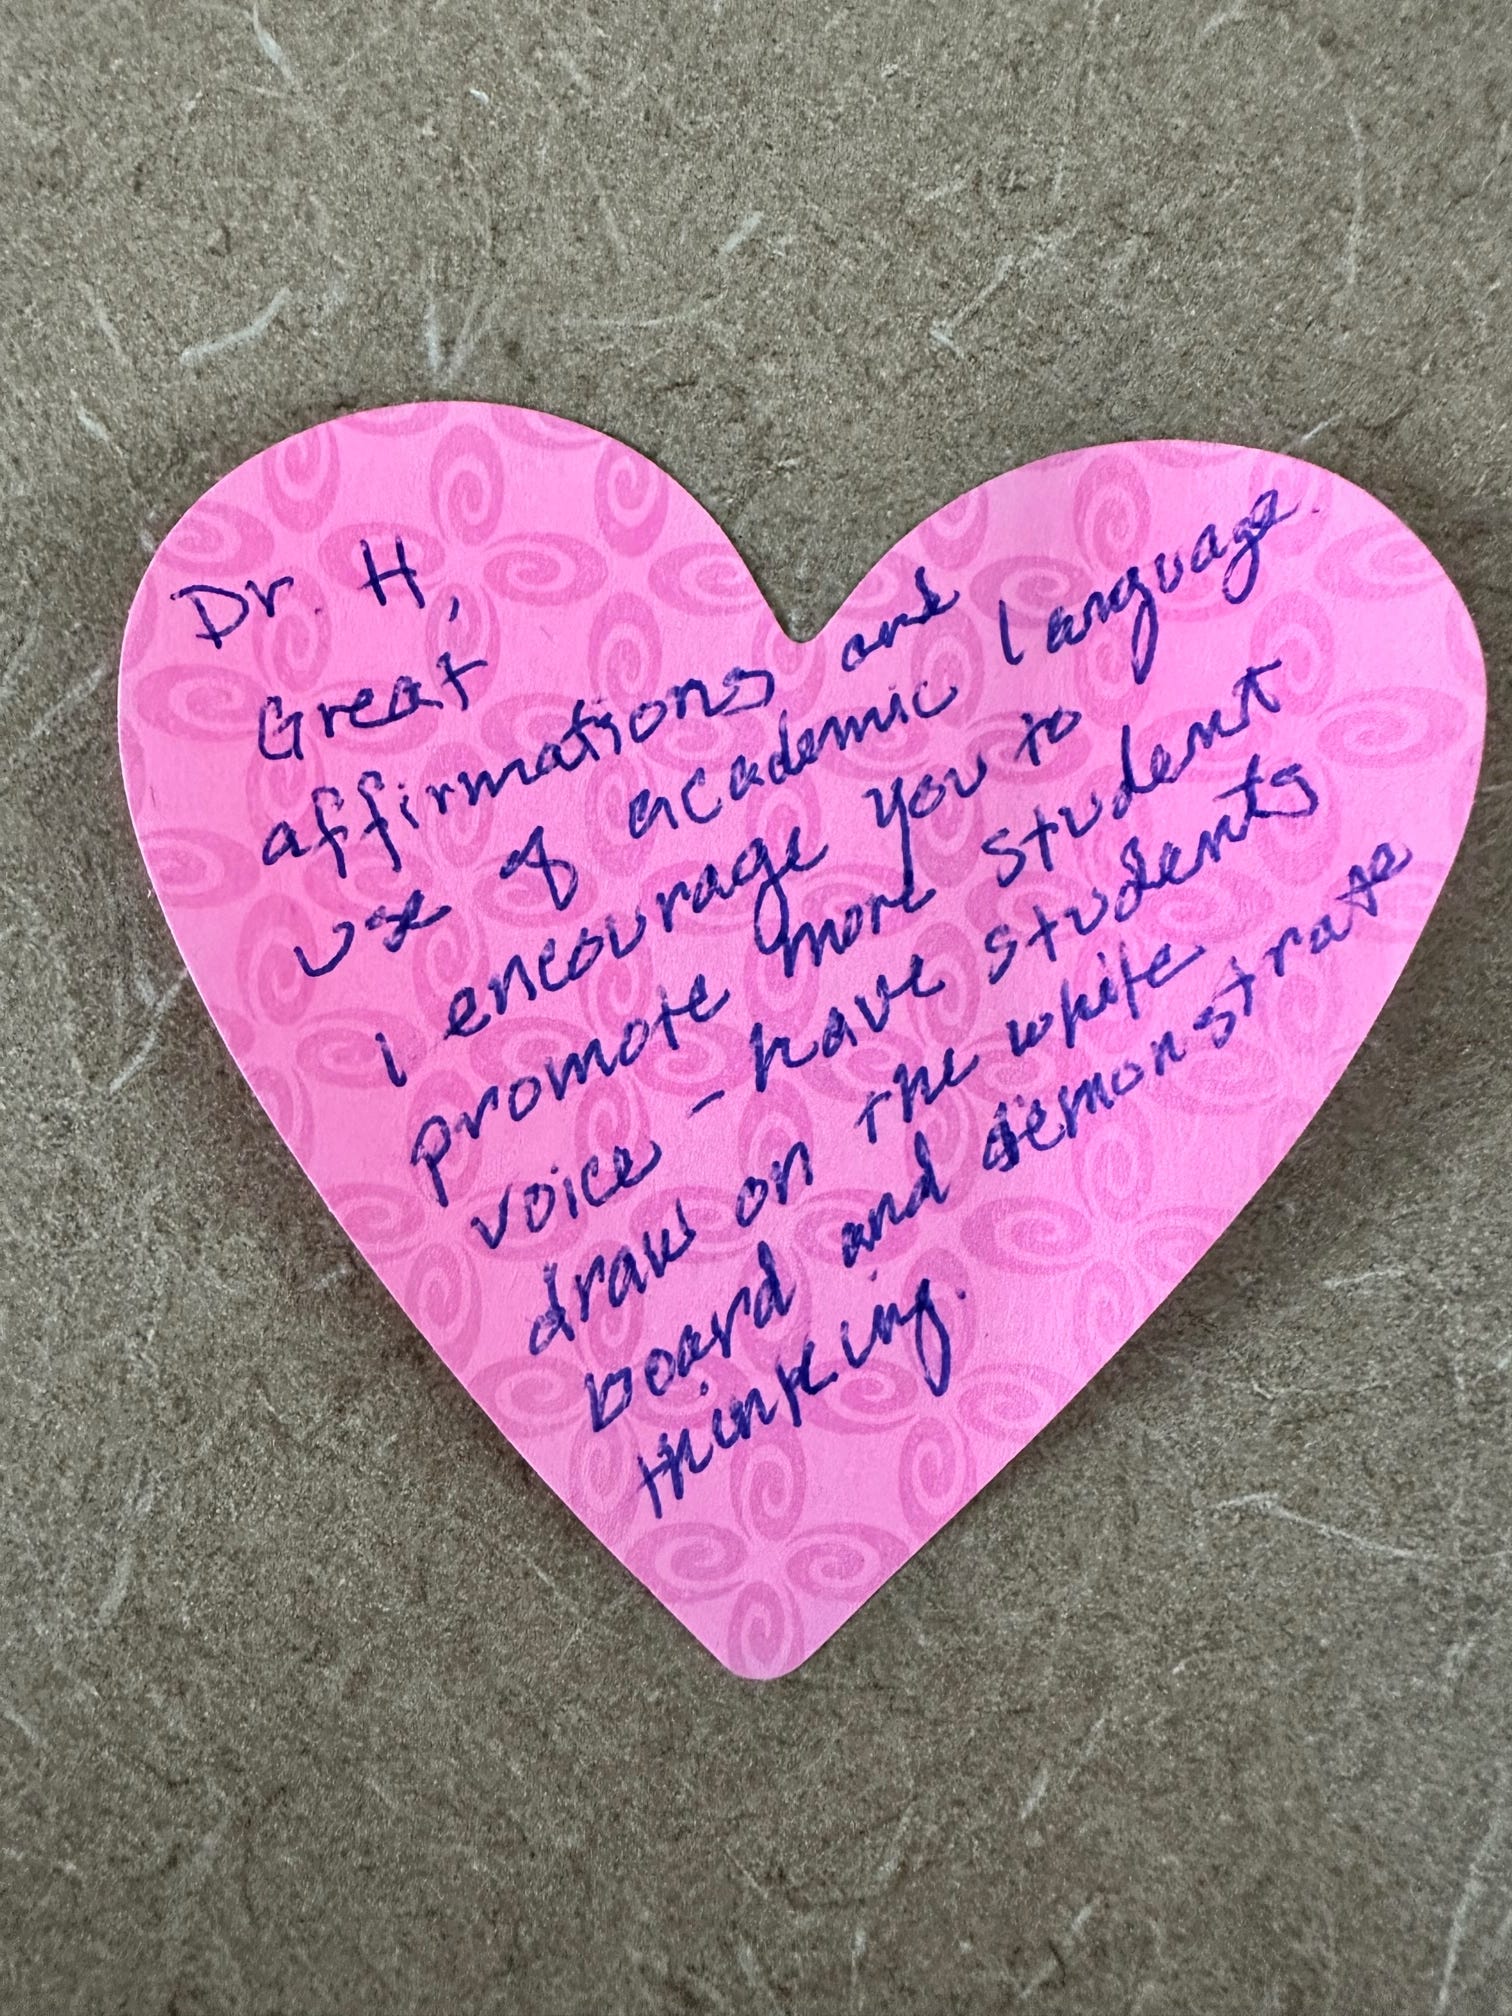 Dr. H,
Great
affirmations and
use of academic language.
I encourage you to
promote more student
voice - have students
draw on the white
board and demonstrate
thinking.